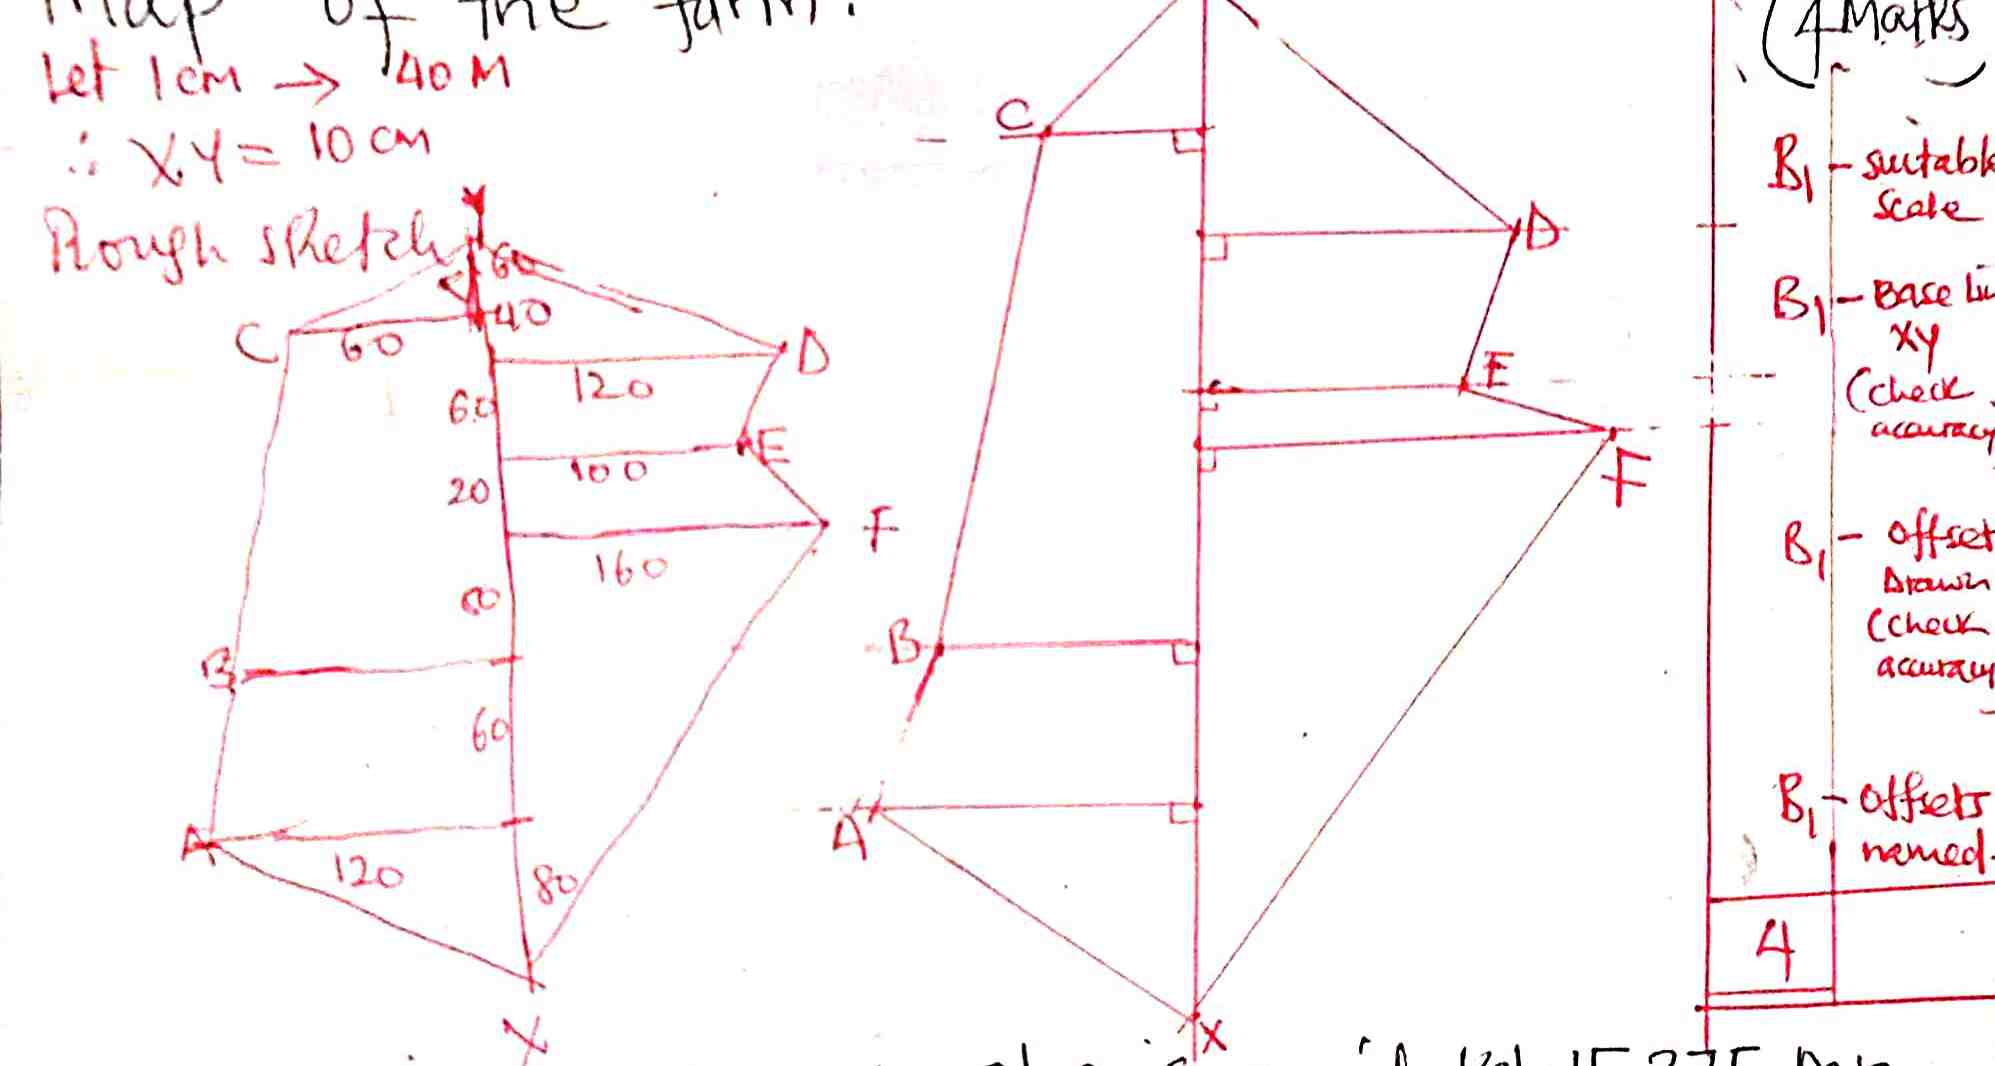 Map of the farm.
(4 Marks
Let 1cm → 40 M
∴ XY = 10 cm
Rough sketch
Y
60
C
60
40
D
120
60
E
100
20
F
160
80
B
60
A
120
80
X
C
D
E
F
B
A
X
B1 - suitable
scale
B1 - Base Li
xy
(check
accuracy
B1 - offset
Drawn
(check
accuracy
B1 - offsets
named.
4